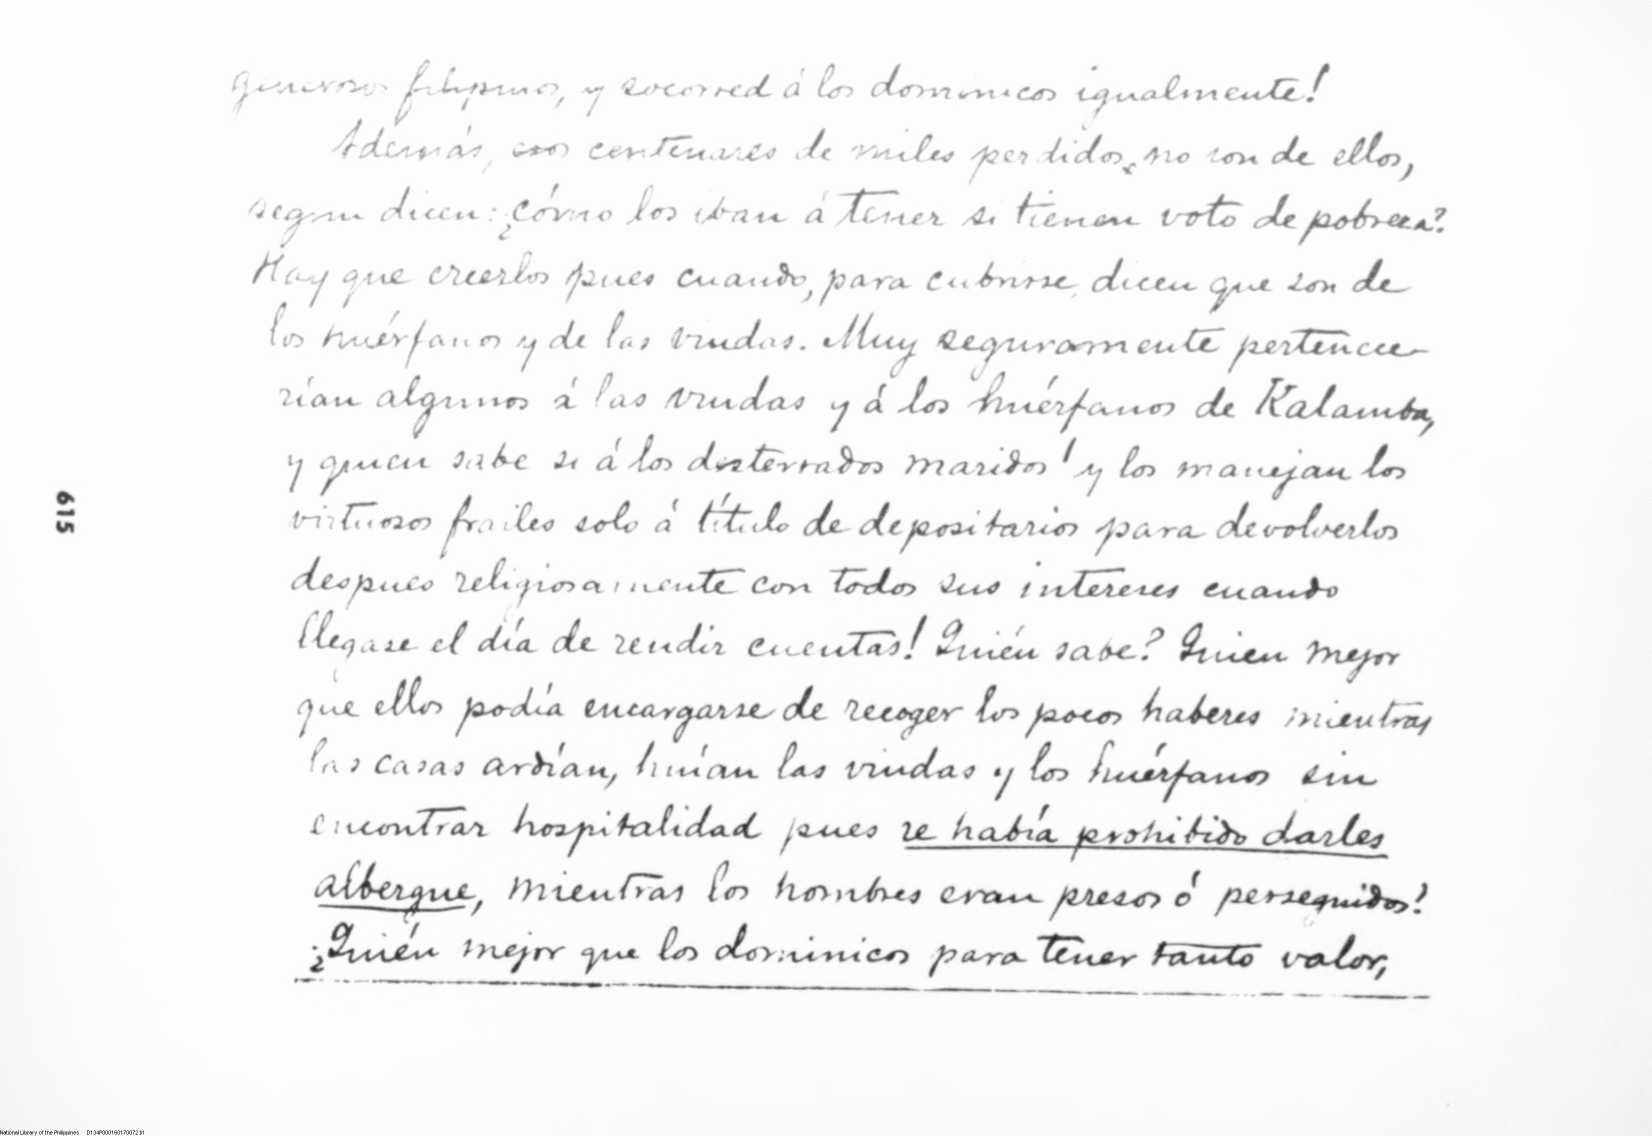 generosos filipinos, y socorred á los dominicos igualmente!
Además, esos centenares de miles perdidos, no son de ellos,
segun dicen: ¿cómo los iban á tener si tienen voto de pobreza?
Hay que creerlos pues cuando, para cubrirse, dicen que son de
los huérfanos y de las viudas. Muy seguramente pertenece-
rían algunos á las viudas y á los huérfanos de Kalamba,
y quien sabe si á los desterrados maridos! y los manejan los
virtuosos frailes solo á título de depositarios para devolverlos
despues religiosamente con todos sus intereses cuando
llegase el día de rendir cuentas! Quién sabe? Quien mejor
que ellos podía encargarse de recoger los pocos haberes mientras
las casas ardían, huían las viudas y los huérfanos sin
encontrar hospitalidad pues se había prohibido darles
albergue, mientras los hombres eran presos ó perseguidos?
¿Quién mejor que los dominicos para tener tanto valor,
615
National Library of the Philippines